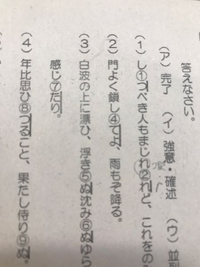 答えなさい。
（ア）完了　（イ）強意・確述　（ウ）並列
（１）し①つべき人もまじれ②れど、これをの
（２）門よく鎖し④てよ、雨もぞ降る。
（３）白波の上に漂ひ、浮き⑤ぬ沈み⑥ぬゆら
感じ⑦たり。
（４）年比思ひ⑧つること、果たし侍り⑨ぬ。